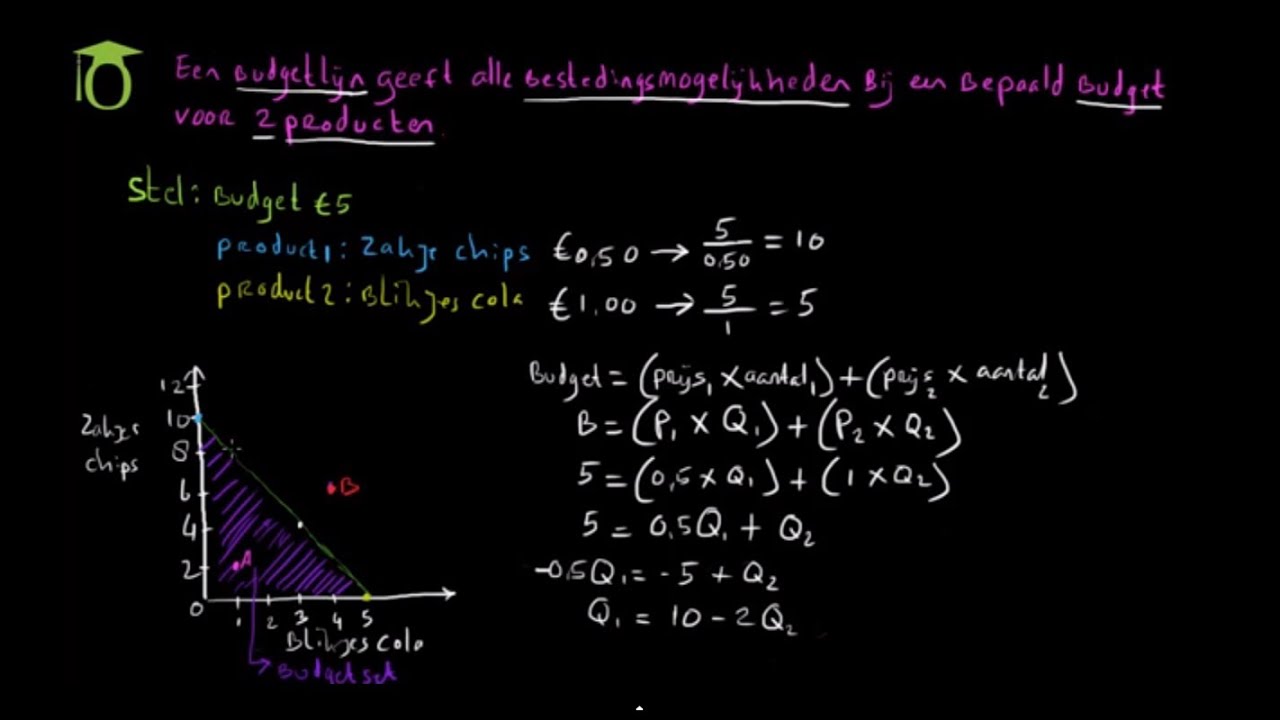 Een Budgetlijn geeft alle Bestedingsmogelijkheden Bij een Bepaald Budget
voor 2 producten.
Stel: Budget €5
product1: Zakje chips €0,50 → 5/0,50 = 10
product2: Blikjes cola €1,00 → 5/1 = 5
Budget = (prijs₁ x aantal₁) + (prijs₂ x aantal₂)
B = (P₁ x Q₁) + (P₂ x Q₂)
5 = (0,5 x Q₁) + (1 x Q₂)
5 = 0,5Q₁ + Q₂
-0,5Q₁ = -5 + Q₂
Q₁ = 10 - 2Q₂
Zakjes
chips
12
10
8
6
4
2
0
B
A
1 2 3 4 5
Blikjes cola
Budget set